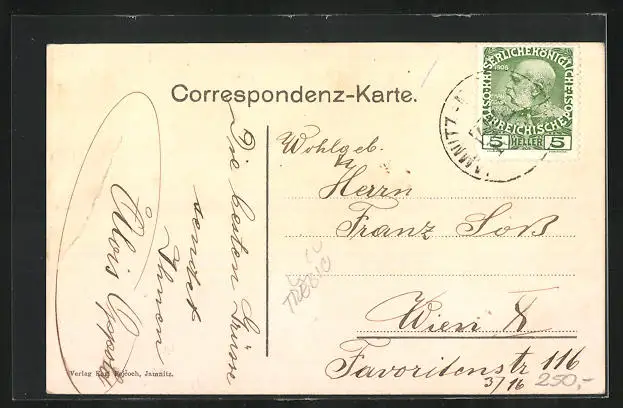 Correspondenz-Karte.
Die besten Grüsse
sendet
Ihnen
Alois
Verlag Karl, Jamnitz.
Wohlgeb.
Herrn
Franz Soß
Wien X
Favoritenstr 116
3/16
250,-
TREBIC
KAISERLICHE KÖNIGLICHE ÖSTERREICHISCHE POST
1908
5 HELLER 5
JAMNITZ